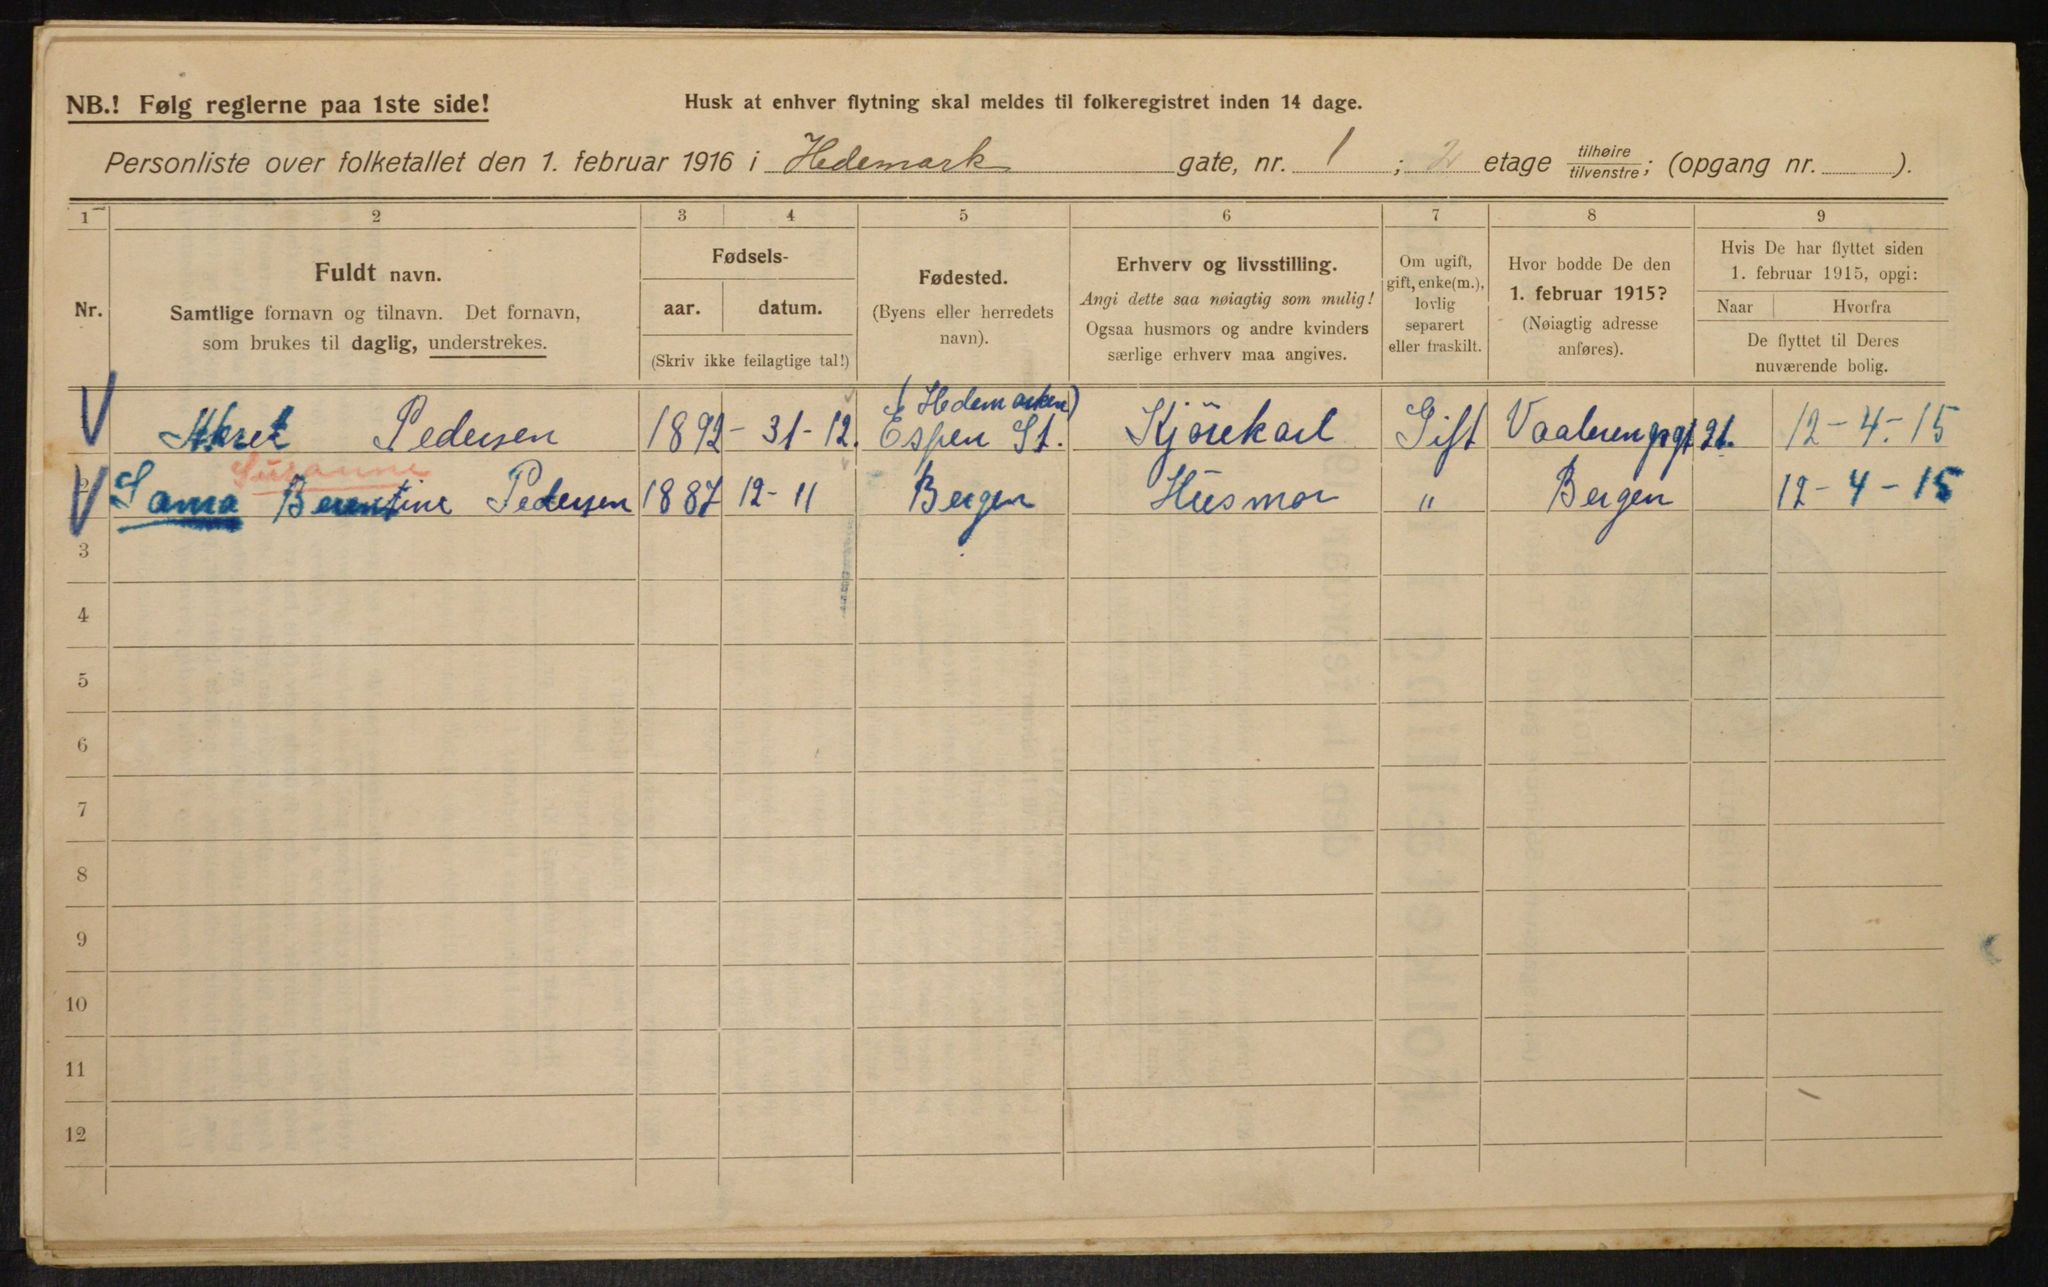 NB.! Følg reglerne paa 1ste side!
Husk at enhver flytning skal meldes til folkeregistret inden 14 dage.
Personliste over folketallet den 1. februar 1916 i Hedemark gate, nr. 1 ; 2 etage tilhøire/tilvenstre; (opgang nr. ).
1 2 3 4 5 6 7 8 9
Nr.
Fuldt navn.
Samtlige fornavn og tilnavn. Det fornavn,
som brukes til daglig, understrekes.
Fødsels-
aar. datum.
(Skriv ikke feilagtige tal!)
Fødested.
(Byens eller herredets
navn).
Erhverv og livsstilling.
Angi dette saa nøiagtig som mulig!
Ogsaa husmors og andre kvinders
særlige erhverv maa angives.
Om ugift,
gift, enke(m.),
lovlig
separert
eller fraskilt.
Hvor bodde De den
1. februar 1915?
(Nøiagtig adresse
anføres).
Hvis De har flyttet siden
1. februar 1915, opgi:
Naar Hvorfra
De flyttet til Deres
nuværende bolig.
(Hedemarken)
Pedersen 1892 - 31-12. Espen St. Kjörekarl Gift Vaalerenggt 21. 12-4-15
Susanne
2 Berentine Pedersen 1887 12-11 Bergen Husmor " Bergen 12-4-15
3
4
5
6
7
8
9
10
11
12